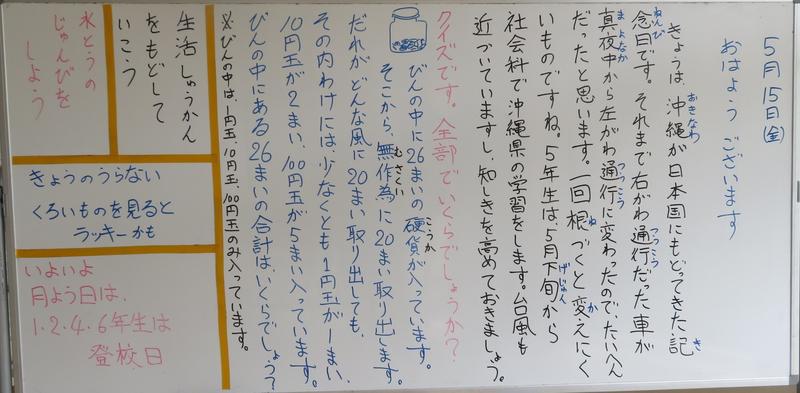 5月15日(金)
おはようございます
きょうは、沖縄が日本国にもどってきた記
おきなわ
き
念日です。それまで右がわ通行だった車が
ねんび
つうこう
真夜中から左がわ通行に変わったので、たいへん
まよなか
つうこう
だったと思います。一回根づくと変えにく
ね
か
いものですね。5年生は5月下旬から
げじゅん
社会科で沖縄県の学習をします。台風も
近づいていますし、知しきを高めておきましょう。
クイズです。全部でいくらでしょうか？
びんの中に26まいの硬貨が入っています。
こうか
そこから、無作為に20まい取り出します。
むさくい
だれがどんな風に20まい取り出しても、
その内わけには、少なくとも1円玉が1まい、
10円玉が2まい、100円玉が5まい入っています。
びんの中にある26まいの合計は、いくらでしょう？
※びんの中は、1円玉、10円玉、100円玉のみ入っています。
生活しゅうかん
をもどして
いこう
水とうの
じゅんびを
しよう
きょうのうらない
くろいものを見ると
ラッキーかも
いよいよ
月よう日は、
1・2・4・6年生は
登校日